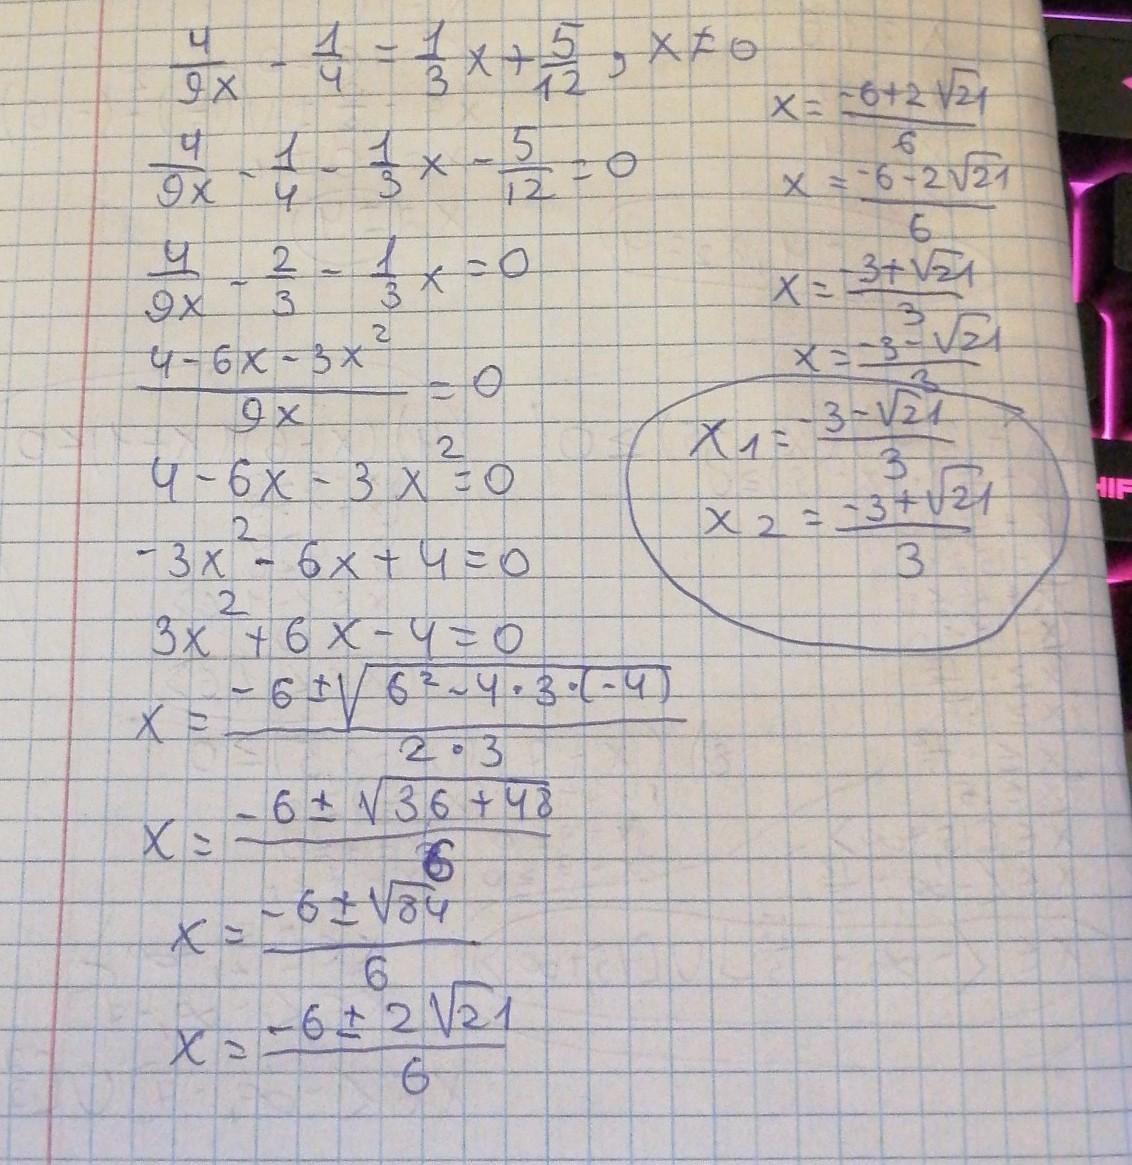 4/9x - 1/4 = 1/3 x + 5/12 , x ≠ 0
4/9x - 1/4 - 1/3 x - 5/12 = 0
4/9x - 2/3 - 1/3 x = 0
4 - 6x - 3x² / 9x = 0
4 - 6x - 3x² = 0
-3x² - 6x + 4 = 0
3x² + 6x - 4 = 0
x = -6 ± √(6² - 4 · 3 · (-4)) / 2 · 3
x = -6 ± √(36 + 48) / 6
x = -6 ± √84 / 6
x = -6 ± 2√21 / 6
x = -6 + 2√21 / 6
x = -6 - 2√21 / 6
x = -3 + √21 / 3
x = -3 - √21 / 3
x1 = -3 - √21 / 3
x2 = -3 + √21 / 3